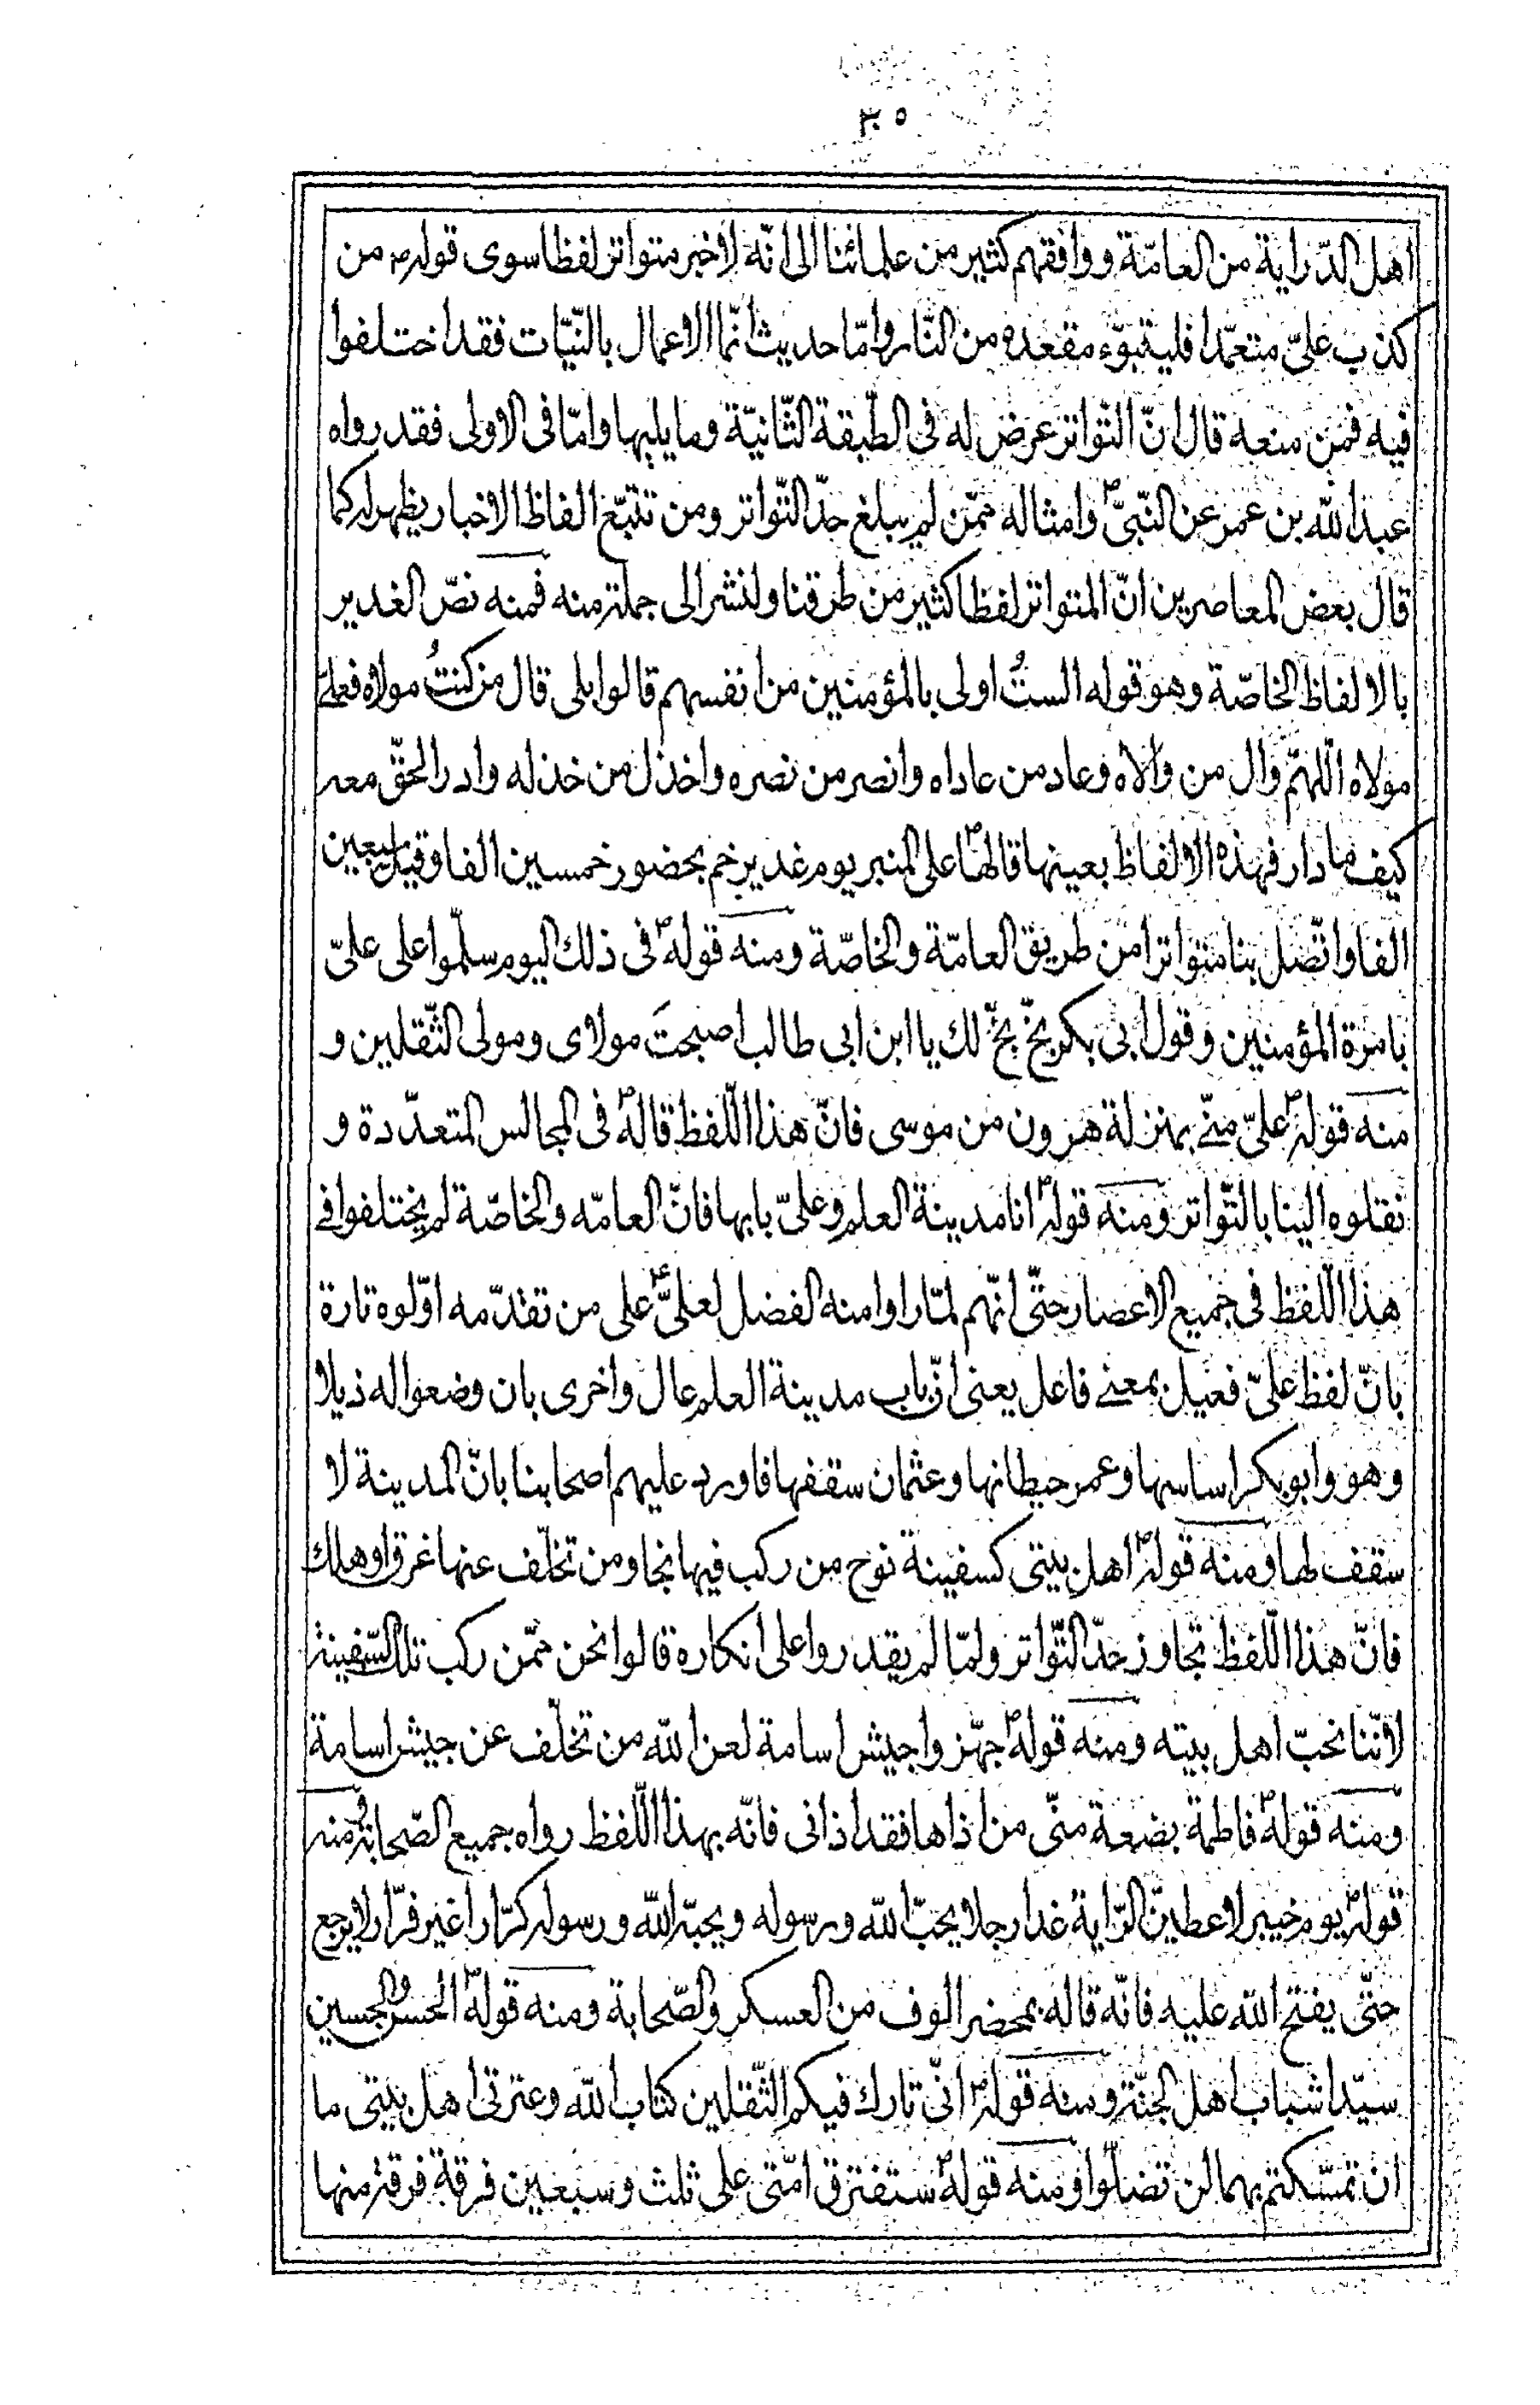 ٣٠٥
اهل الدّراية من العامّة ووافقهم كثير من علمائنا الى انّه لا خبر متواتر لفظا سوى قوله ص من
كذب علىّ متعمّدا فليتبوّء مقعده من النّار وامّا حديث انّما الاعمال بالنّيّات فقد اختلفوا
فيه فمن منعه قال انّ التّواتر عرض له فى الطّبقة الثّانيّة وما يليها وامّا فى الاولى فقد رواه
عبد اللّه بن عمر عن النّبىّ ص وامثاله ممّن لم يبلغ حدّ التّواتر ومن تتبّع الفاظ الاخبار يظهر له كما
قال بعض المعاصرين انّ المتواتر لفظا كثير من طرقنا ولنشر الى جملة منه فمنه نصّ الغدير
بالالفاظ الخاصّة وهو قوله الستُ اولى بالمؤمنين من انفسهم قالوا بلى قال من كنتُ مولاه فعلىّ
مولاه اللّهمّ وال من والاه وعاد من عاداه وانصر من نصره واخذل من خذله وادر الحقّ معه
كيف ما دار فهذه الالفاظ بعينها قالها ص على المنبر يوم غدير خم بحضور خمسين الفا وقيل سبعين
الفا واتّصل بنا متواترا من طريق العامّة والخاصّة ومنه قوله ص فى ذلك اليوم سلّموا على علىّ
بامرة المؤمنين وقول ابى بكر بخّ بخّ لك يا ابن ابى طالب اصبحتَ مولاى ومولى الثّقلين و
منه قوله ص علىّ منّى بمنزلة هرون من موسى فانّ هذا اللّفظ قاله ص فى المجالس المتعدّدة و
نقلوه الينا بالتّواتر ومنه قوله ص انا مدينة العلم وعلىّ بابها فانّ العامّه والخاصّة لم يختلفوا فى
هذا اللّفظ فى جميع الاعصار حتّى انّهم لمّا راوا منه الفضل لعلىّ ع على من تقدّمه اوّلوه تارة
بانّ لفظ علىّ فعيل بمعنى فاعل يعنى انّ باب مدينة العلم عال واخرى بان وضعوا له ذيلا
وهو وابو بكر اساسها وعمر حيطانها وعثمان سقفها فاورد عليهم اصحابنا بانّ المدينة لا
سقف لها ومنه قوله ص اهل بيتى كسفينة نوح من ركب فيها نجا ومن تخلّف عنها غرق او هلك
فانّ هذا اللّفظ تجاوز حدّ التّواتر ولمّا لم يقدروا على انكاره قالوا نحن ممّن ركب تلك السّفينة
لانّنا نحبّ اهل بيته ومنه قوله ص جهّزوا جيش اسامة لعن اللّه من تخلّف عن جيش اسامة
ومنه قوله ص فاطمة بضعة منّى من اذاها فقد اذانى فانّه بهذا اللّفظ رواه جميع الصّحابة ومنه
قوله ص يوم خيبر لاعطينّ الرّاية غدا رجلا يحبّ اللّه ورسوله ويحبّه اللّه ورسوله كرّارا غير فرّار لا يرجع
حتّى يفتح اللّه عليه فانّه قاله بمحضر الوف من العسكر والصّحابة ومنه قوله ص الحسن والحسين
سيّدا شباب اهل الجنّة ومنه قوله ص انّى تارك فيكم الثّقلين كتاب اللّه وعترتى اهل بيتى ما
ان تمسّكتم بهما لن تضلّوا ومنه قوله ص ستفترق امّتى على ثلث وسبعين فرقة فرقة منها